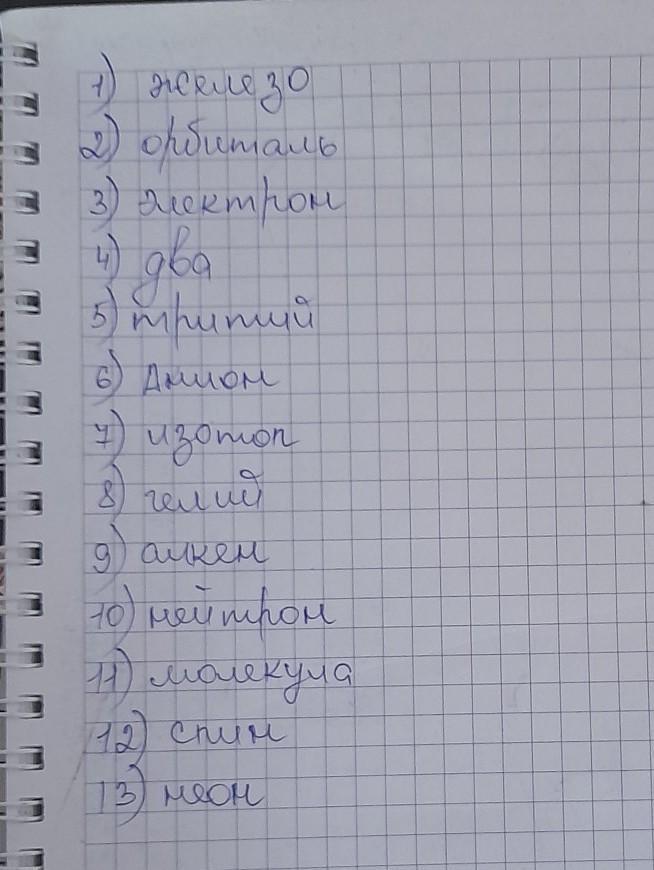 1) железо
2) орбиталь
3) электрон
4) два
5) тритий
6) Анион
7) изотоп
8) гелий
9) алкен
10) нейтрон
11) молекула
12) спин
13) неон